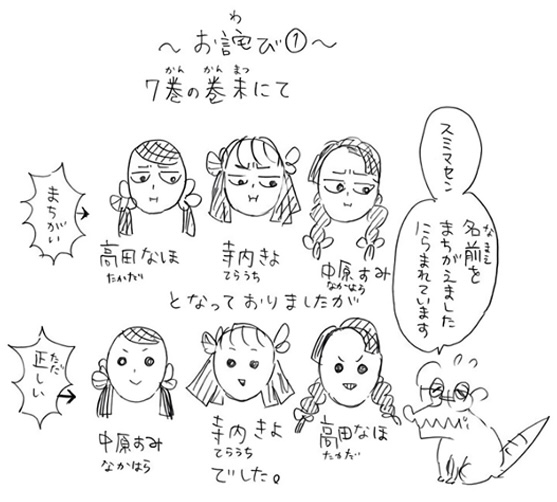 ～お詫び①～
わ
7巻の巻末にて
かん かんまつ
まちがい
高田なほ
たかだ
寺内きよ
てらうち
中原すみ
なかはら
となっておりましたが
正しい
ただ
中原すみ
なかはら
寺内きよ
てらうち
高田なほ
たかだ
でした。
スミマセン
名前を
なまえ
まちがえました
にらまれています